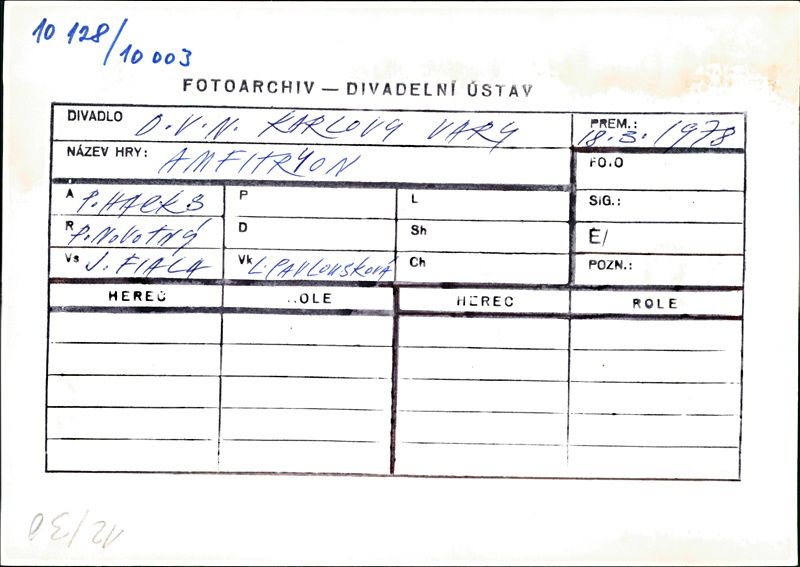 10 128/10 003
FOTOARCHIV — DIVADELNÍ ÚSTAV
DIVADLO D.V.N. KARLOVY VARY
PREM.: 18.3.1978
NÁZEV HRY: AMFITRYON
FOTO
A P. HACKS P L SIG.:
R P. NOVOTNÝ D Sh É/
Vs J. FIALA Vk L. PAVLOUSKOVÁ Ch POZN.:
HEREC ROLE HEREC ROLE